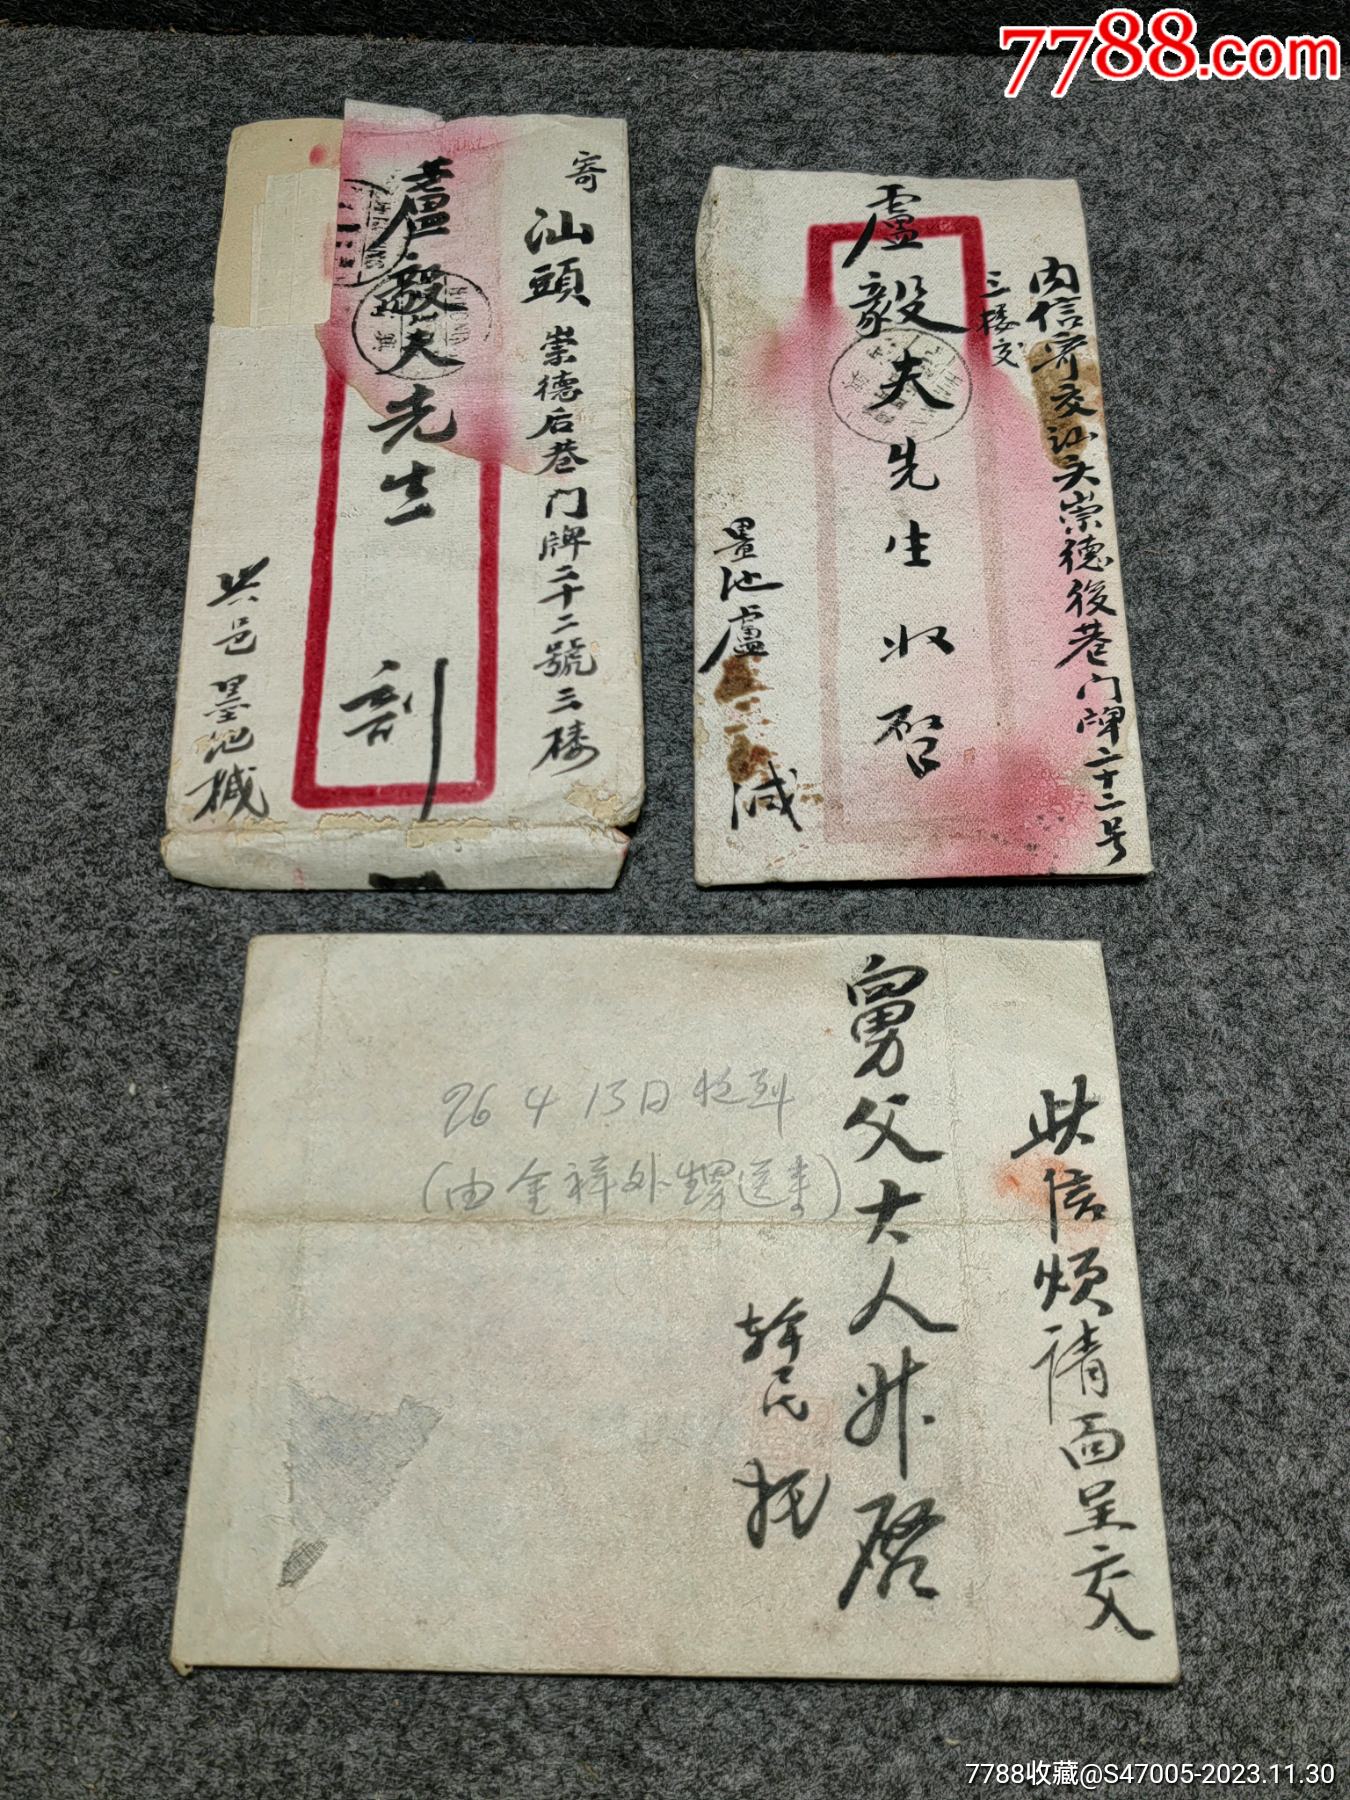 7788.com
寄
汕頭崇德后巷门牌二十二號三楼
蘆毅夫先生 剖
兴邑墨池械
内信寄交汕头崇德後巷门牌二十二号
三楼交
盧毅夫先生收启
墨池盧 缄
此信烦请面呈交
舅父大人升启
幹民托
26 4 13日收到
(由金祥外甥送来)
7788收藏@S47005-2023.11.30